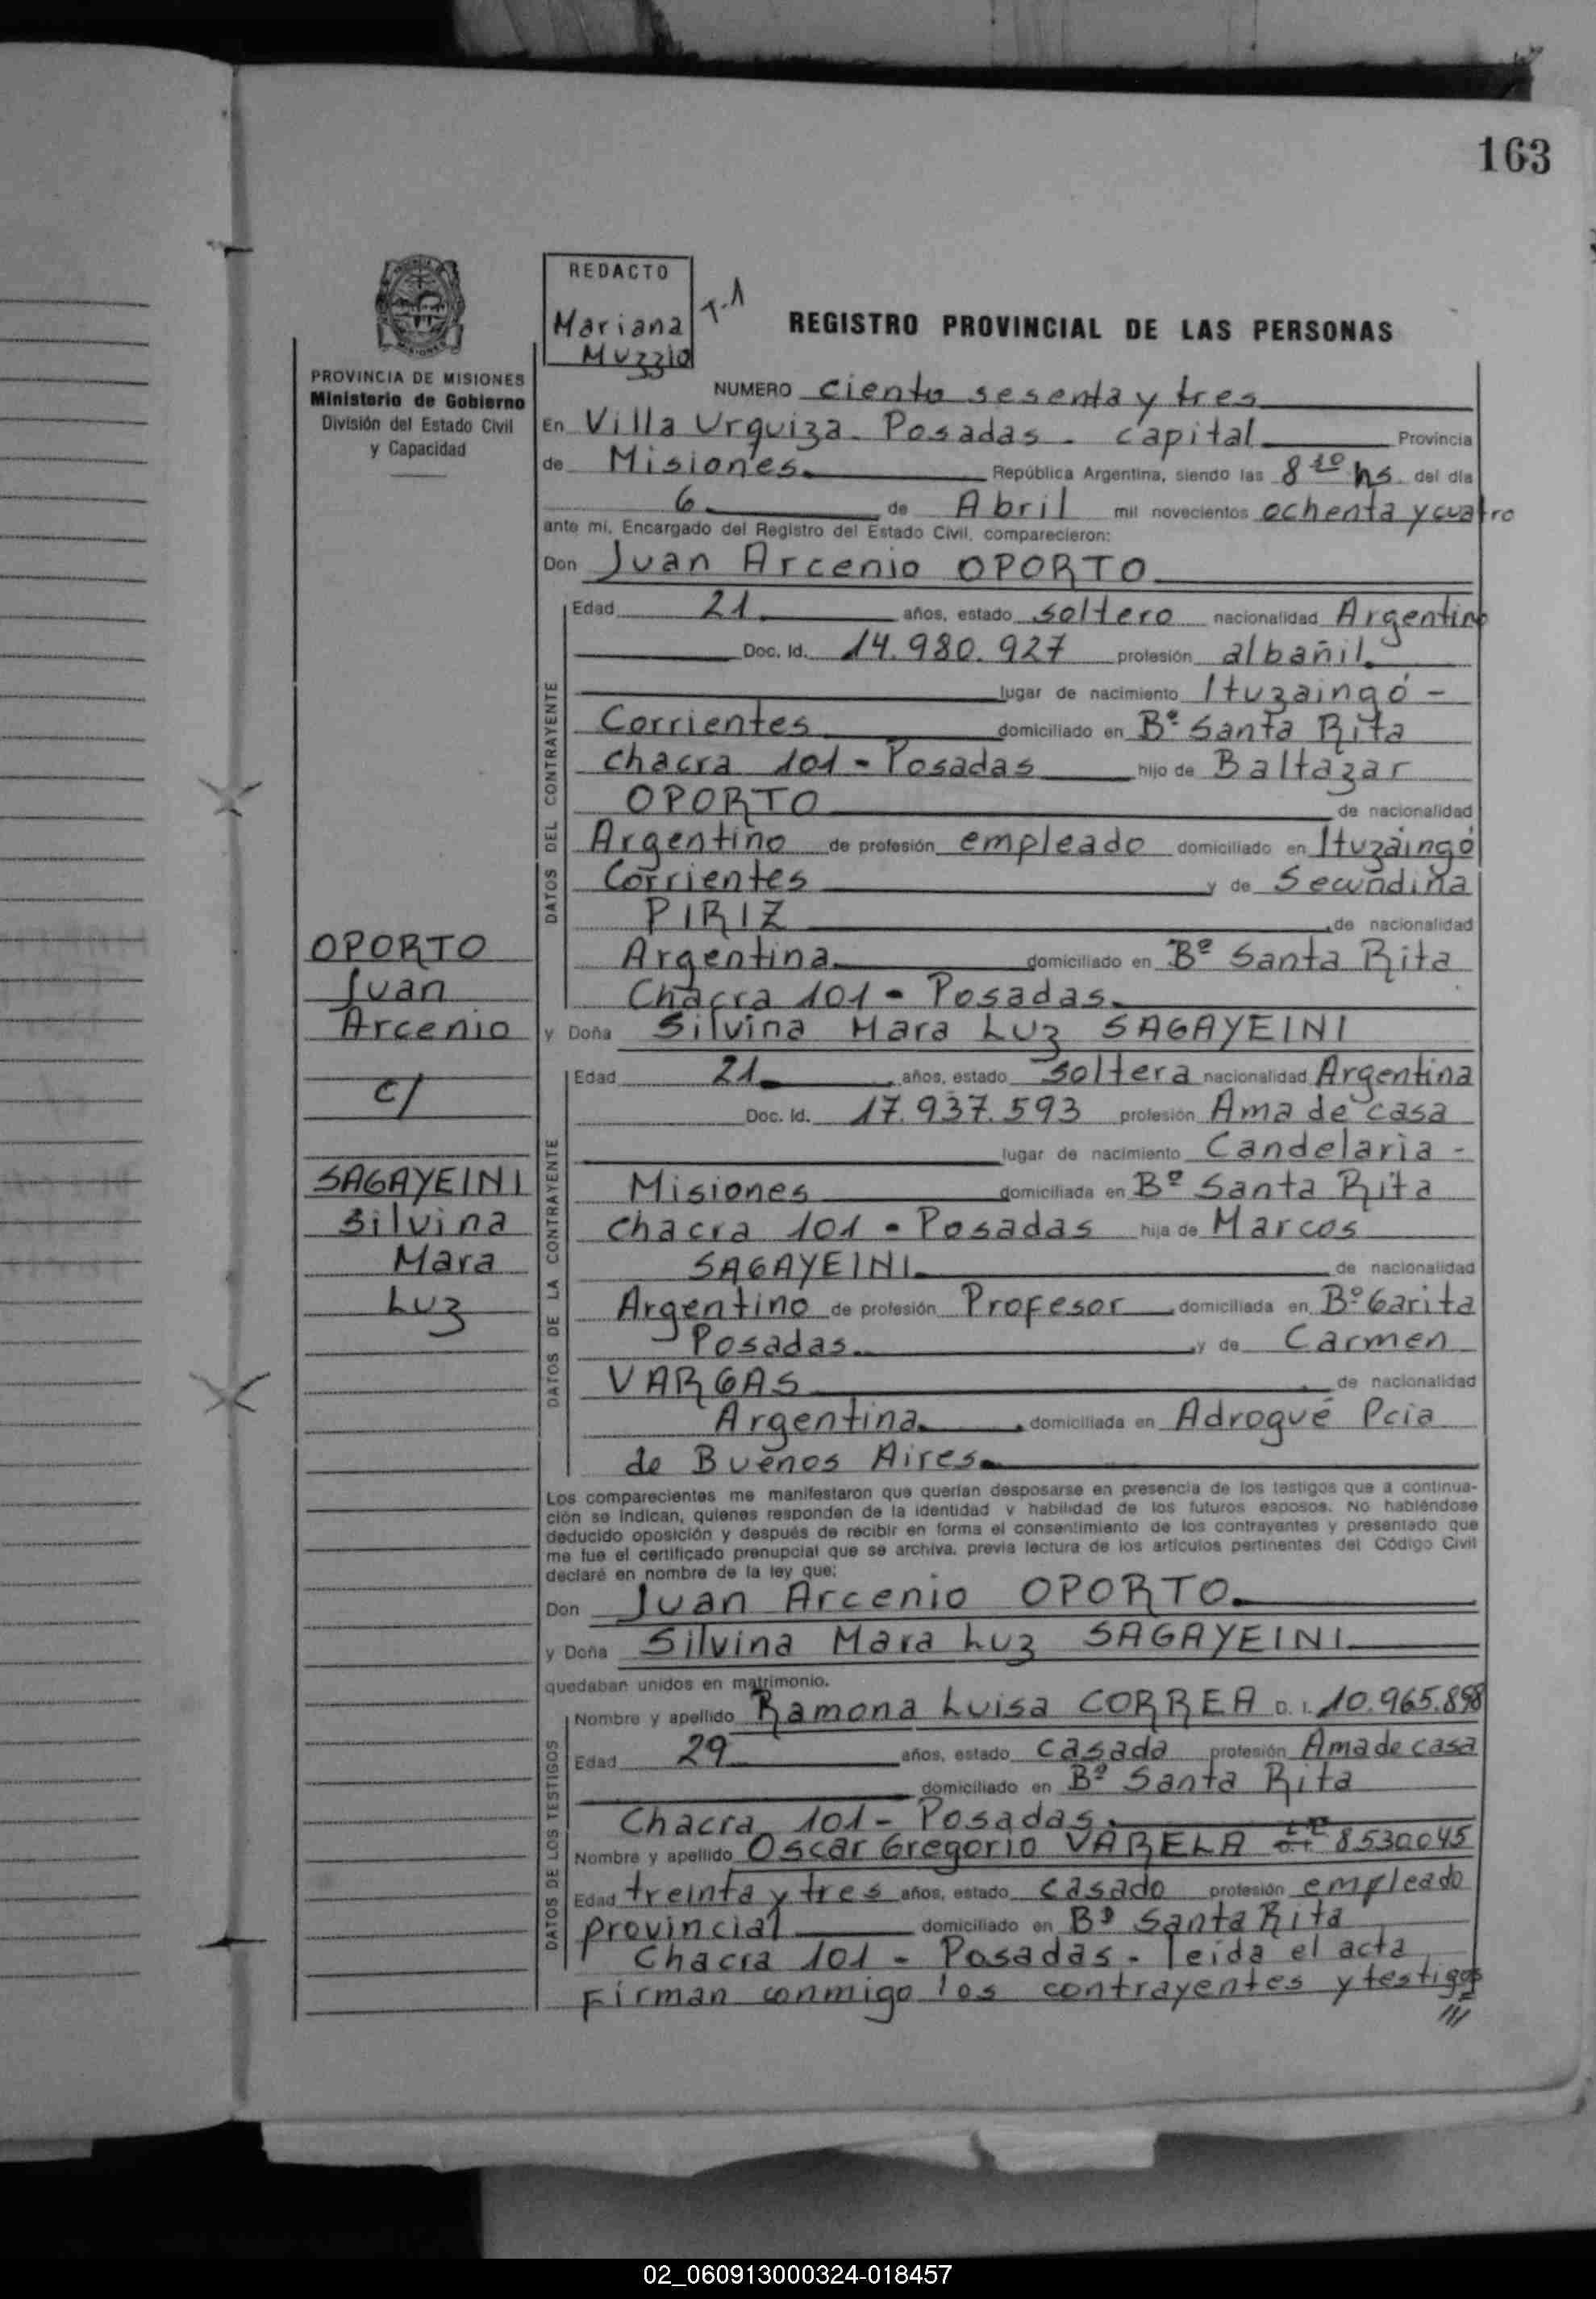 163
REDACTO
Mariana
Muzzio
T-1
REGISTRO PROVINCIAL DE LAS PERSONAS
PROVINCIA DE MISIONES
Ministerio de Gobierno
División del Estado Civil
y Capacidad
NUMERO ciento sesenta y tres
En Villa Urquiza - Posadas - capital Provincia
de Misiones República Argentina, siendo las 8 10 hs. del día
6 de Abril mil novecientos ochenta y cuatro
ante mi, Encargado del Registro del Estado Civil, comparecieron:
Don Juan Arcenio OPORTO
DATOS DEL CONTRAYENTE
Edad 21 años, estado soltero nacionalidad Argentino
Doc. Id. 14.980.927 profesión albañil
lugar de nacimiento Ituzaingó -
Corrientes domiciliado en Bº Santa Rita
chacra 101 - Posadas hijo de Baltazar
OPORTO de nacionalidad
Argentino de profesión empleado domiciliado en Ituzaingó
Corrientes y de Secundina
PIRIZ de nacionalidad
Argentina domiciliado en Bº Santa Rita
Chacra 101 - Posadas.
y Doña Silvina Mara Luz SAGAYEINI
OPORTO
Juan
Arcenio
c/
SAGAYEINI
Silvina
Mara
Luz
DATOS DE LA CONTRAYENTE
Edad 21 años, estado soltera nacionalidad Argentina
Doc. Id. 17.937.593 profesión Ama de casa
lugar de nacimiento Candelaria -
Misiones domiciliada en Bº Santa Rita
chacra 101 - Posadas hija de Marcos
SAGAYEINI de nacionalidad
Argentino de profesión Profesor domiciliada en Bº Garita
Posadas y de Carmen
VARGAS de nacionalidad
Argentina domiciliada en Adrogué Pcia
de Buenos Aires
Los comparecientes me manifestaron que querían desposarse en presencia de los testigos que a continua-
ción se indican, quienes responden de la identidad y habilidad de los futuros esposos. No habiéndose
deducido oposición y después de recibir en forma el consentimiento de los contrayentes y presentado que
me fue el certificado prenupcial que se archiva, previa lectura de los artículos pertinentes del Código Civil
declaré en nombre de la ley que:
Don Juan Arcenio OPORTO
y Doña Silvina Mara Luz SAGAYEINI
quedaban unidos en matrimonio.
DATOS DE LOS TESTIGOS
Nombre y apellido Ramona Luisa CORREA D. I. 10.965.898
Edad 29 años, estado casada profesión Ama de casa
domiciliado en Bº Santa Rita
Chacra 101 - Posadas.
Nombre y apellido Oscar Gregorio VARELA 8530045
Edad treinta y tres años, estado casado profesión empleado
provincial domiciliado en Bº Santa Rita
Chacra 101 - Posadas - leída el acta
Firman conmigo los contrayentes y testigos
///
02_060913000324-018457